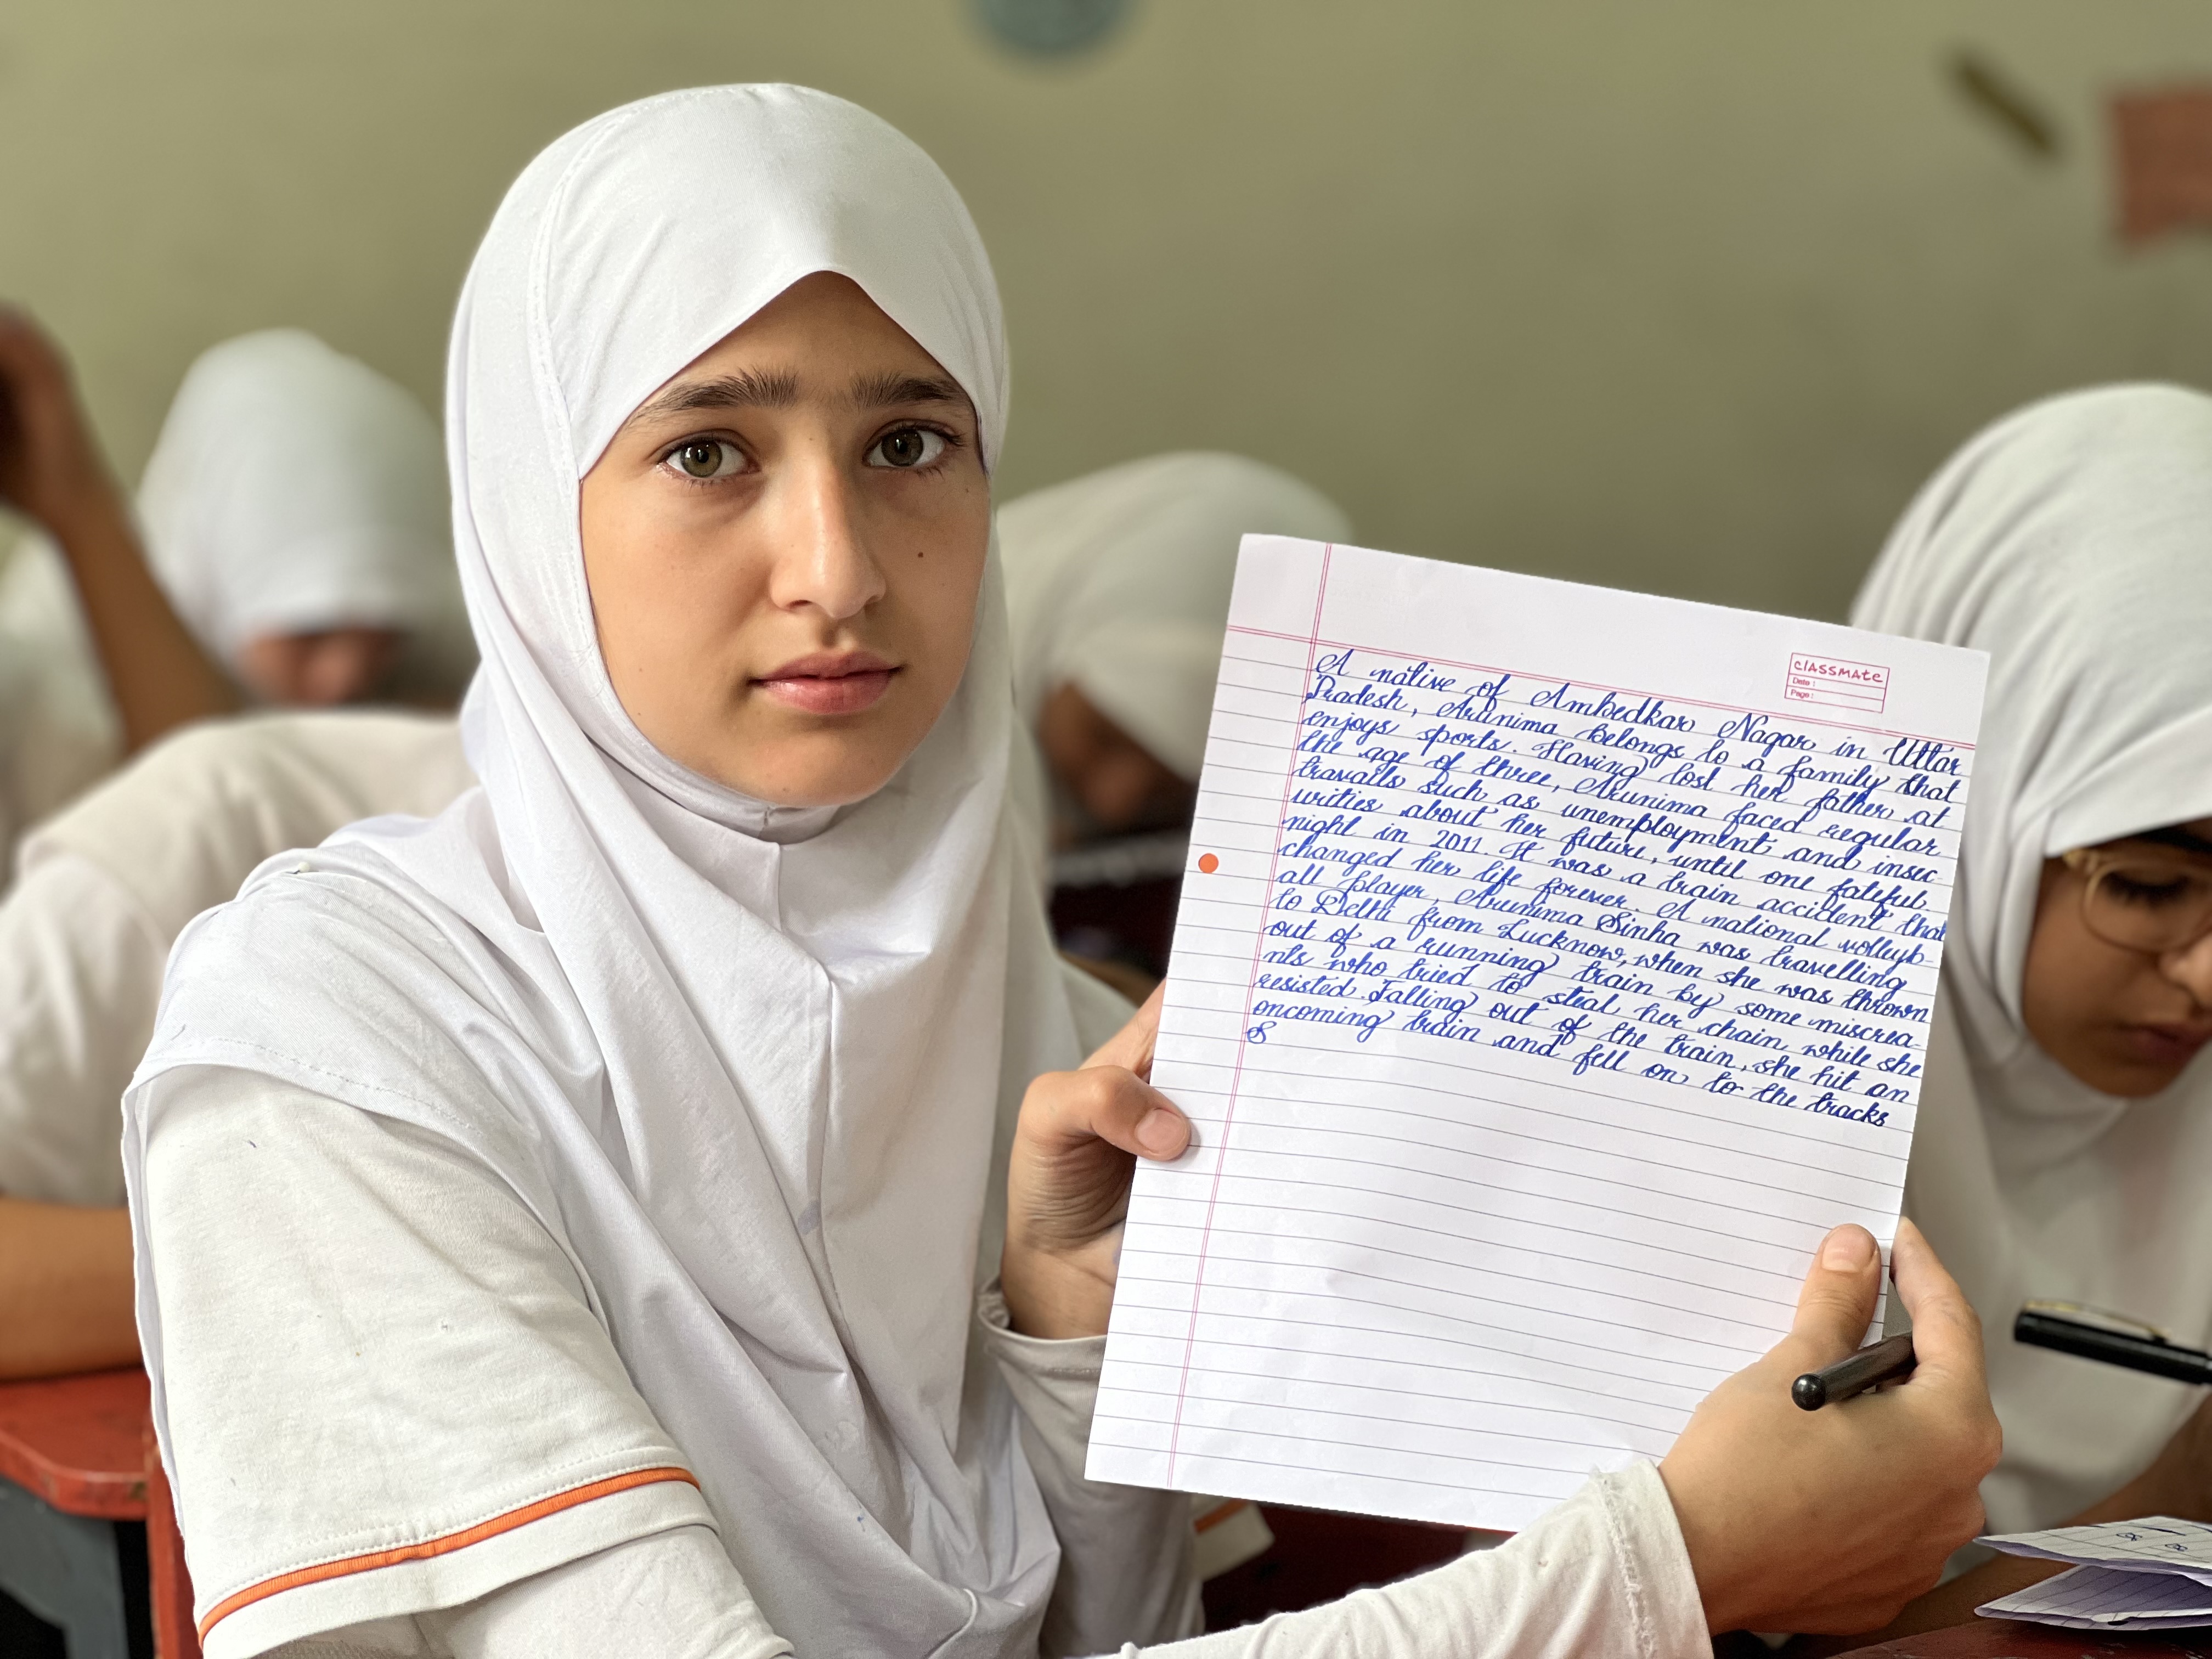 CLASSMATE
Date :
Page :
A native of Ambedkar Nagar in Uttar
Pradesh, Arunima belongs to a family that
enjoys sports. Having lost her father at
the age of three, Arunima faced regular
travails such as unemployment and insec-
urities about her future, until one fateful
night in 2011. It was a train accident that
changed her life forever. A national volleyb-
all player, Arunima Sinha was travelling
to Delhi from Lucknow, when she was thrown
out of a running train by some miscrea-
nts who tried to steal her chain while she
resisted. Falling out of the train, she hit an
oncoming train and fell on to the tracks
S